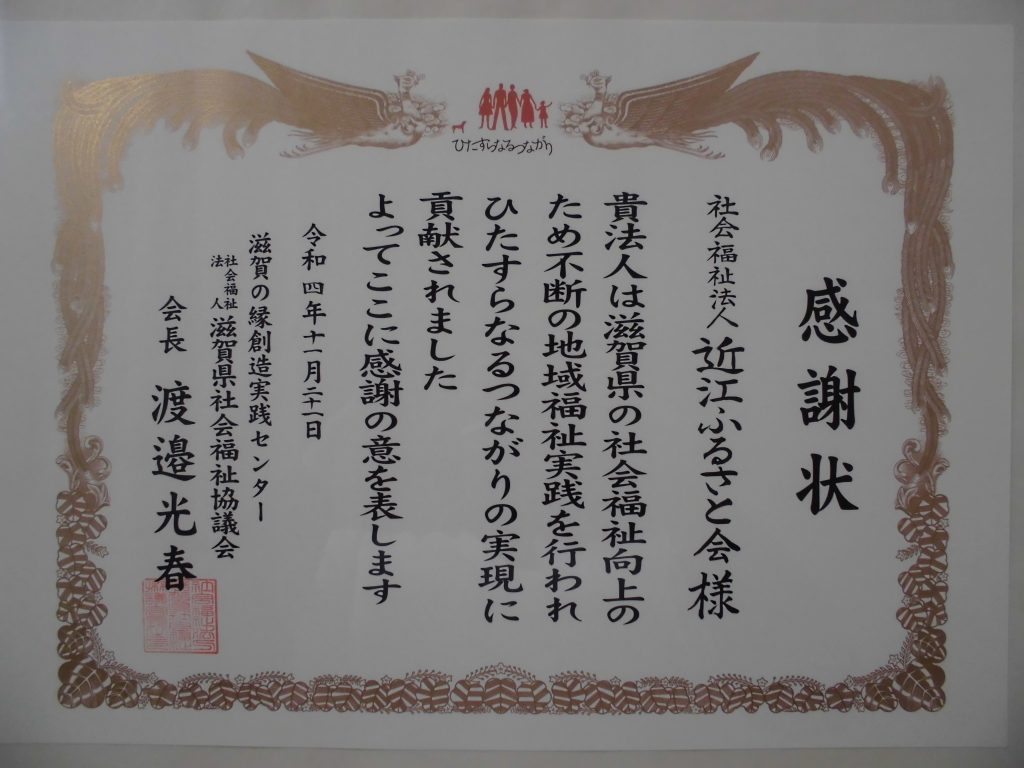 ひたすらなるつながり
感謝状
社会福祉法人 近江ふるさと会様
貴法人は滋賀県の社会福祉向上の
ため不断の地域福祉実践を行われ
ひたすらなるつながりの実現に
貢献されました
よってここに感謝の意を表します
令和四年十一月二十一日
滋賀の縁創造実践センター
社会福祉法人 滋賀県社会福祉協議会
会長 渡邉光春